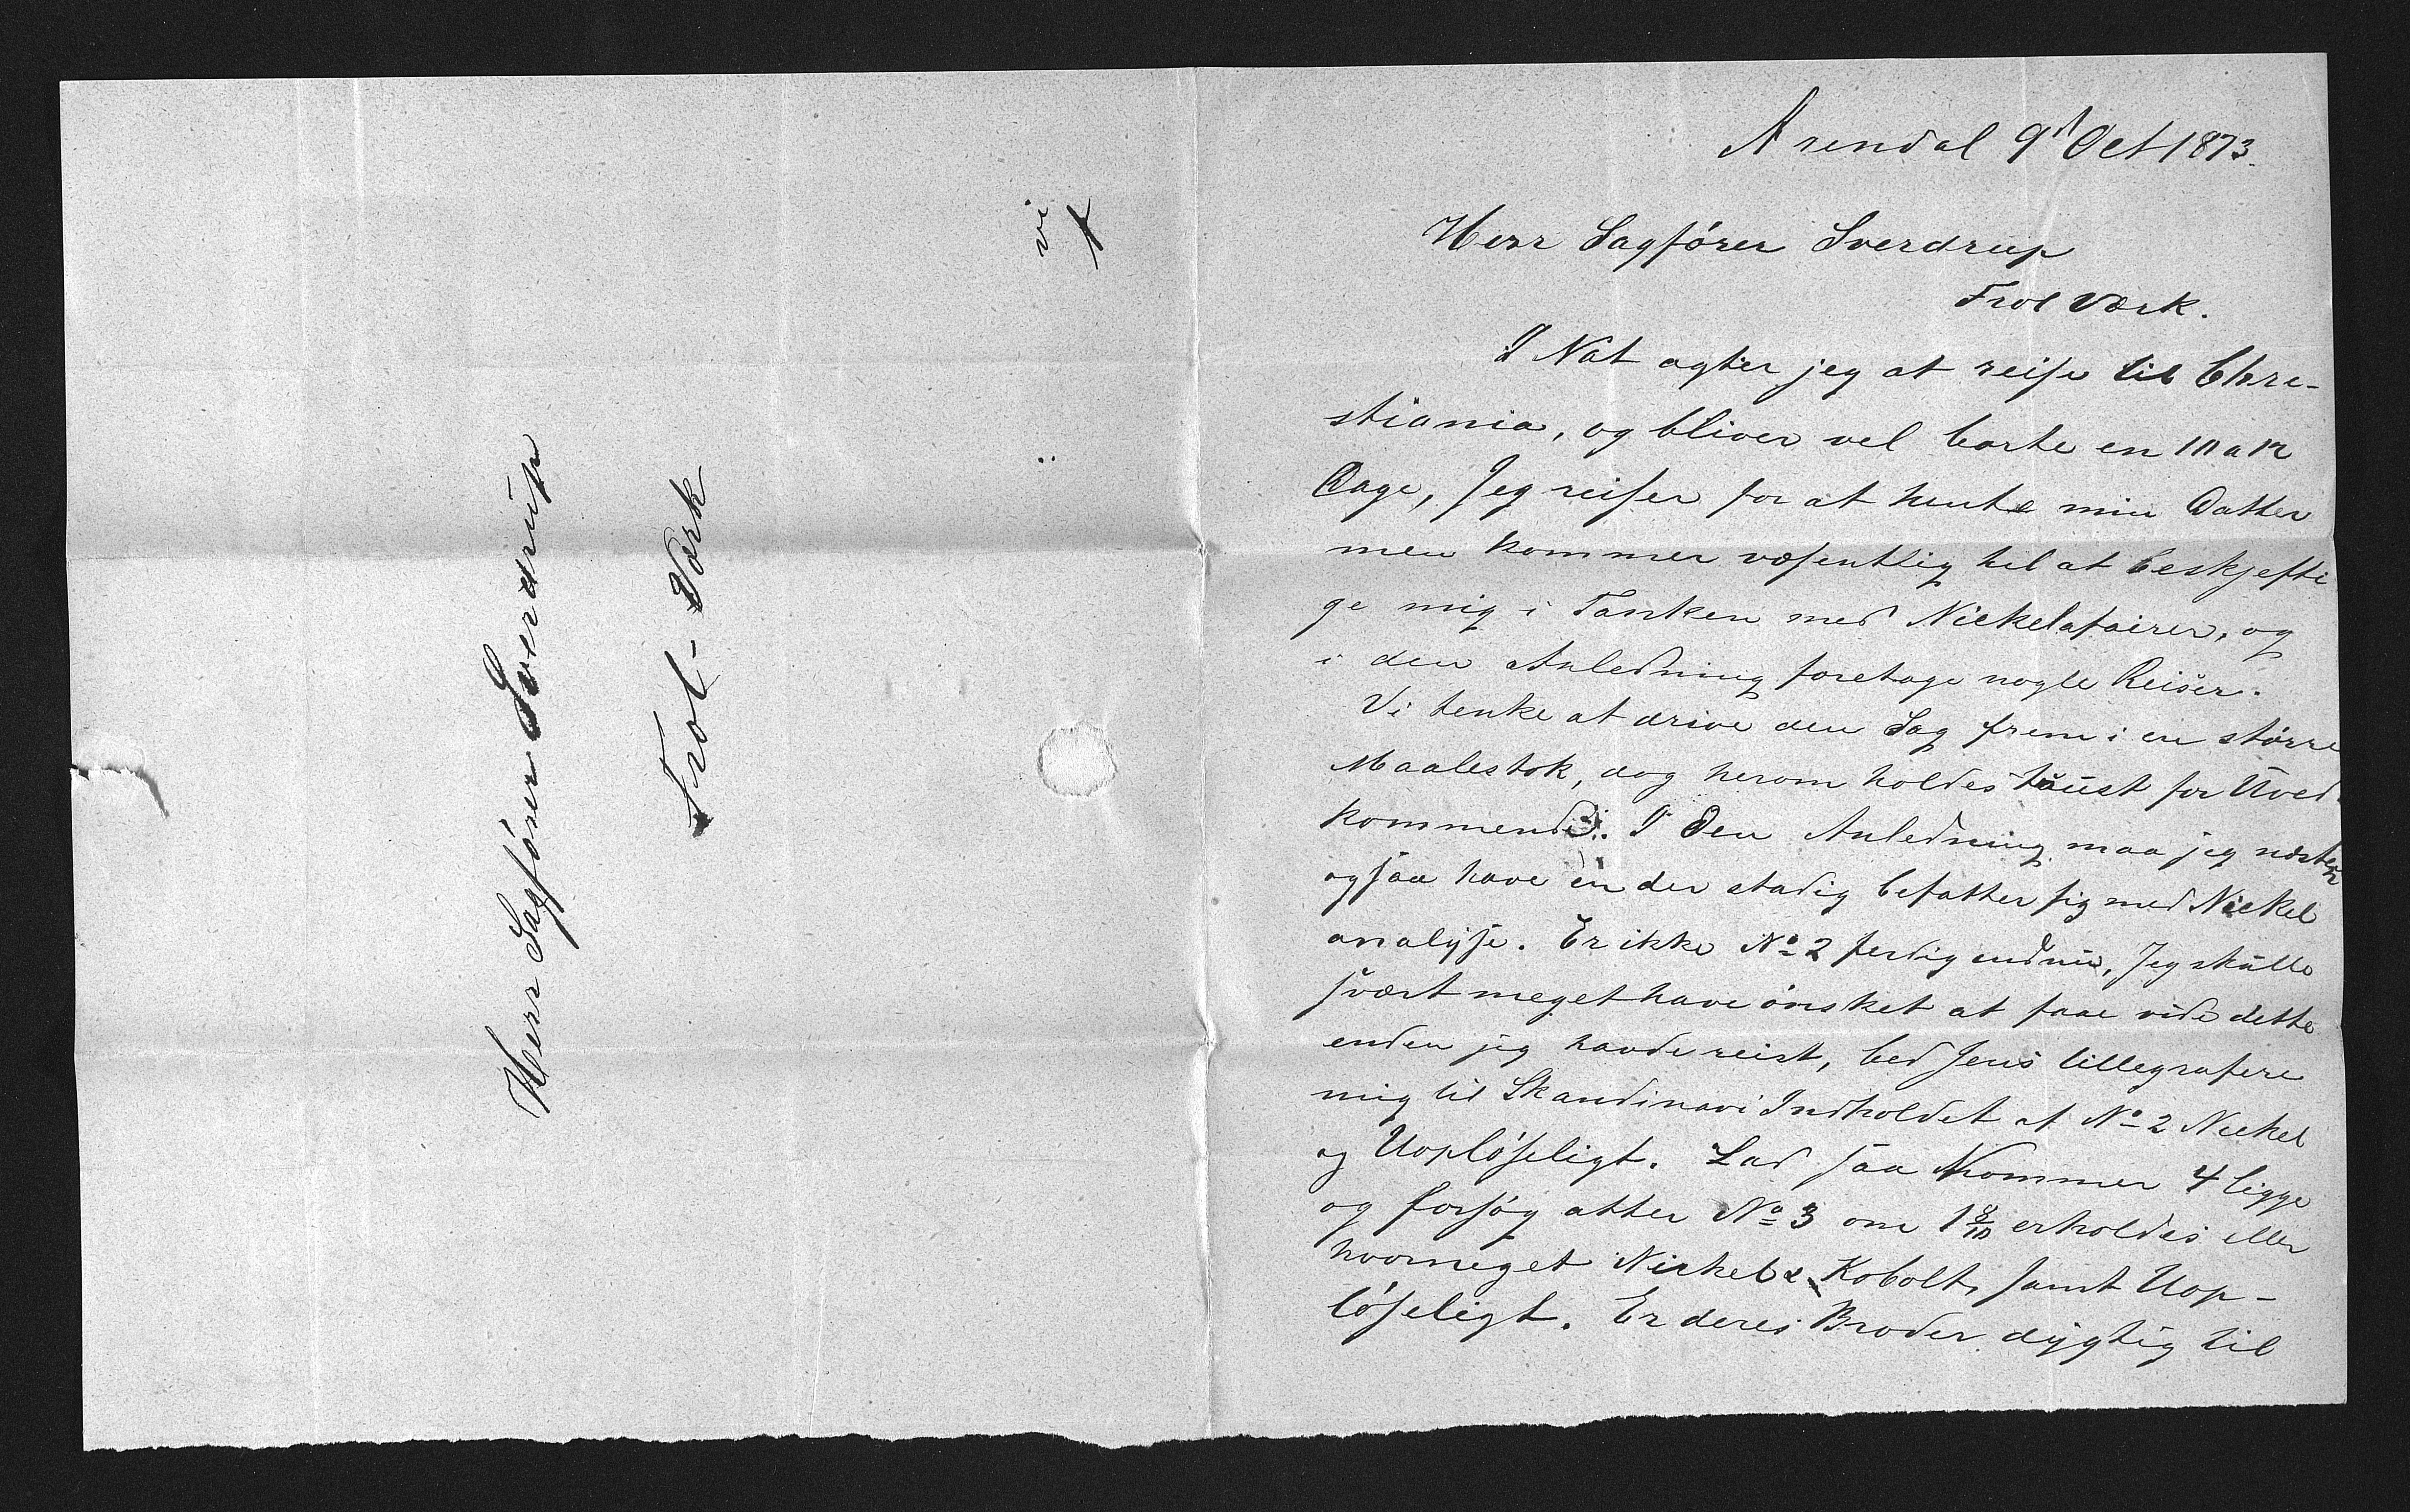 Herr Sagfører Sverdrup
Frol-Værk
vi
Arendal 9d Oct 1873.
Herr Sagfører Sverdrup
Frol Værk.
I Nat agter jeg at reise til Chre-
stiania, og bliver vel borte en 10 a 12
Dage, Jeg reiser for at hente min Datter
men kommer væsentlig til at beskjefti
ge mig i Tanken med Nickelafairer, og
i den Anledning foretage nogle Reiser.
Vi tenke at drive den Sag frem i en større
Maalestok, dog herom holdes taust for Uved-
kommende. I den Anledning maa jeg næsten
ogsaa have en der stadig befatter sig med Nickel
analyse. Er ikke No 2 ferdig endnu, Jeg skulle
svært meget have ønsket at faae vide dette
enden jeg havde reist, bed Jens tillegrafere
mig til Skandinavi Indholdet af No 2 Nickel
og Uopløseligt. Lad saa Nommer 4 ligge
og forsøg atter No 3 om 1 8/10 erholdes eller
hvormeget Nickel & Kobolt, samt Uop-
løseligt. Er deres Broder dygtig til